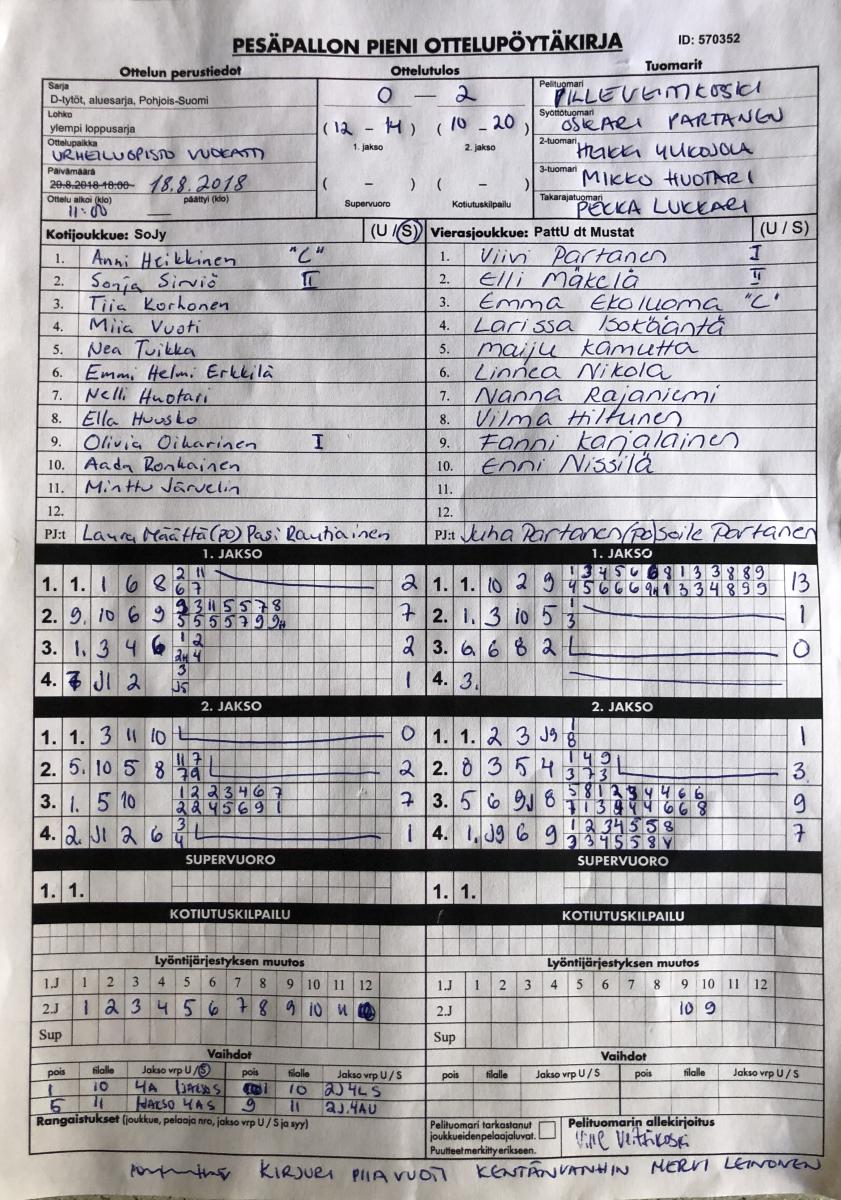 PESÄPALLON PIENI OTTELUPÖYTÄKIRJA ID: 570352
Ottelun perustiedot Ottelutulos Tuomarit
Sarja
D-tytöt, aluesarja, Pohjois-Suomi
Lohko
ylempi loppusarja
Ottelupaikka
URHEILUOPISTO VUOKATTI
Päivämäärä
20.8.2018 18:00 18.8.2018
Ottelu alkoi (klo) päättyi (klo)
11:00
0 — 2
(12 - 14) (10 - 20)
1. jakso 2. jakso
( - ) ( - )
Supervuoro Kotiutuskilpailu
Pelituomari
Syöttötuomari
OSKARI PARTANEN
2-tuomari
3-tuomari
MIKKO HUOTARI
Takarajatuomari
PEKKA LUKKARI
Kotijoukkue: SoJy (U / S) Vierasjoukkue: PattU dt Mustat (U / S)
1. Anni Heikkinen "C" 1. Viivi Partanen I
2. Sonja Sirviö II 2. Elli Mäkelä II
3. Tiia Korhonen 3. Emma Ekoluoma "C"
4. Miia Vuoti 4. Larissa Isokääntä
5. Nea Tuikka 5. Maiju Kamutta
6. Emmi Helmi Erkkilä 6. Linnea Nikola
7. Nelli Huotari 7. Nanna Rajaniemi
8. Ella Huusko 8. Vilma Hiltunen
9. Olivia Oikarinen I 9. Fanni Karjalainen
10. Aada Ronkainen 10. Enni Nissilä
11. Minttu Järvelin 11.
12. 12.
PJ:t Laura Määttä (PO) Pasi Rautiainen PJ:t Juha Partanen (po) Soile Partanen
1. JAKSO 1. JAKSO
1. 1. 1 6 8 2 11 2 1. 1. 10 2 9 13
6 7
2. 9. 10 6 9 7 2. 1. 3 10 5 1 1
3
3. 1. 3 4 6 1 2 2 3. 6. 6 8 2 0
2H 4
4. J1 2 3 1 4. 3.
J5
2. JAKSO 2. JAKSO
1. 1. 3 11 10 0 1. 1. 2 3 J9 1 1
8
2. 5. 10 5 8 11 7 2 2. 8 3 5 4 1 4 9 3
3 7 3
3. 1. 5 10 1 2 2 3 4 6 7 7 3. 5 6 9J 8 9
2 2 4 5 6 9 1
4. 2. J1 2 6 3 1 4. 1. J9 6 9 1 2 3 4 5 5 8 7
4 3 3 4 5 5 8 V
SUPERVUORO SUPERVUORO
1. 1. 1. 1.
KOTIUTUSKILPAILU KOTIUTUSKILPAILU
Lyöntijärjestyksen muutos Lyöntijärjestyksen muutos
1.J 1 2 3 4 5 6 7 8 9 10 11 12 1.J 1 2 3 4 5 6 7 8 9 10 11 12
2.J 1 2 3 4 5 6 7 8 9 10 11 2.J 10 9
Sup Sup
Vaihdot Vaihdot
pois tilalle Jakso vrp U / S pois tilalle Jakso vrp U / S pois tilalle Jakso vrp U / S pois tilalle Jakso vrp U / S
1 10 4A 1 10 2J 4LS
5 11 1JAKSO 4AS 9 11 2J.4AU
Rangaistukset (joukkue, pelaaja nro, jakso vrp U / S ja syy)
Pelituomari tarkastanut joukkueiden pelaajaluvat.
Puutteet merkitty erikseen.
Pelituomarin allekirjoitus
KIRJURI PIIA VUOTI KENTÄNVANHIN MERVI LEINONEN